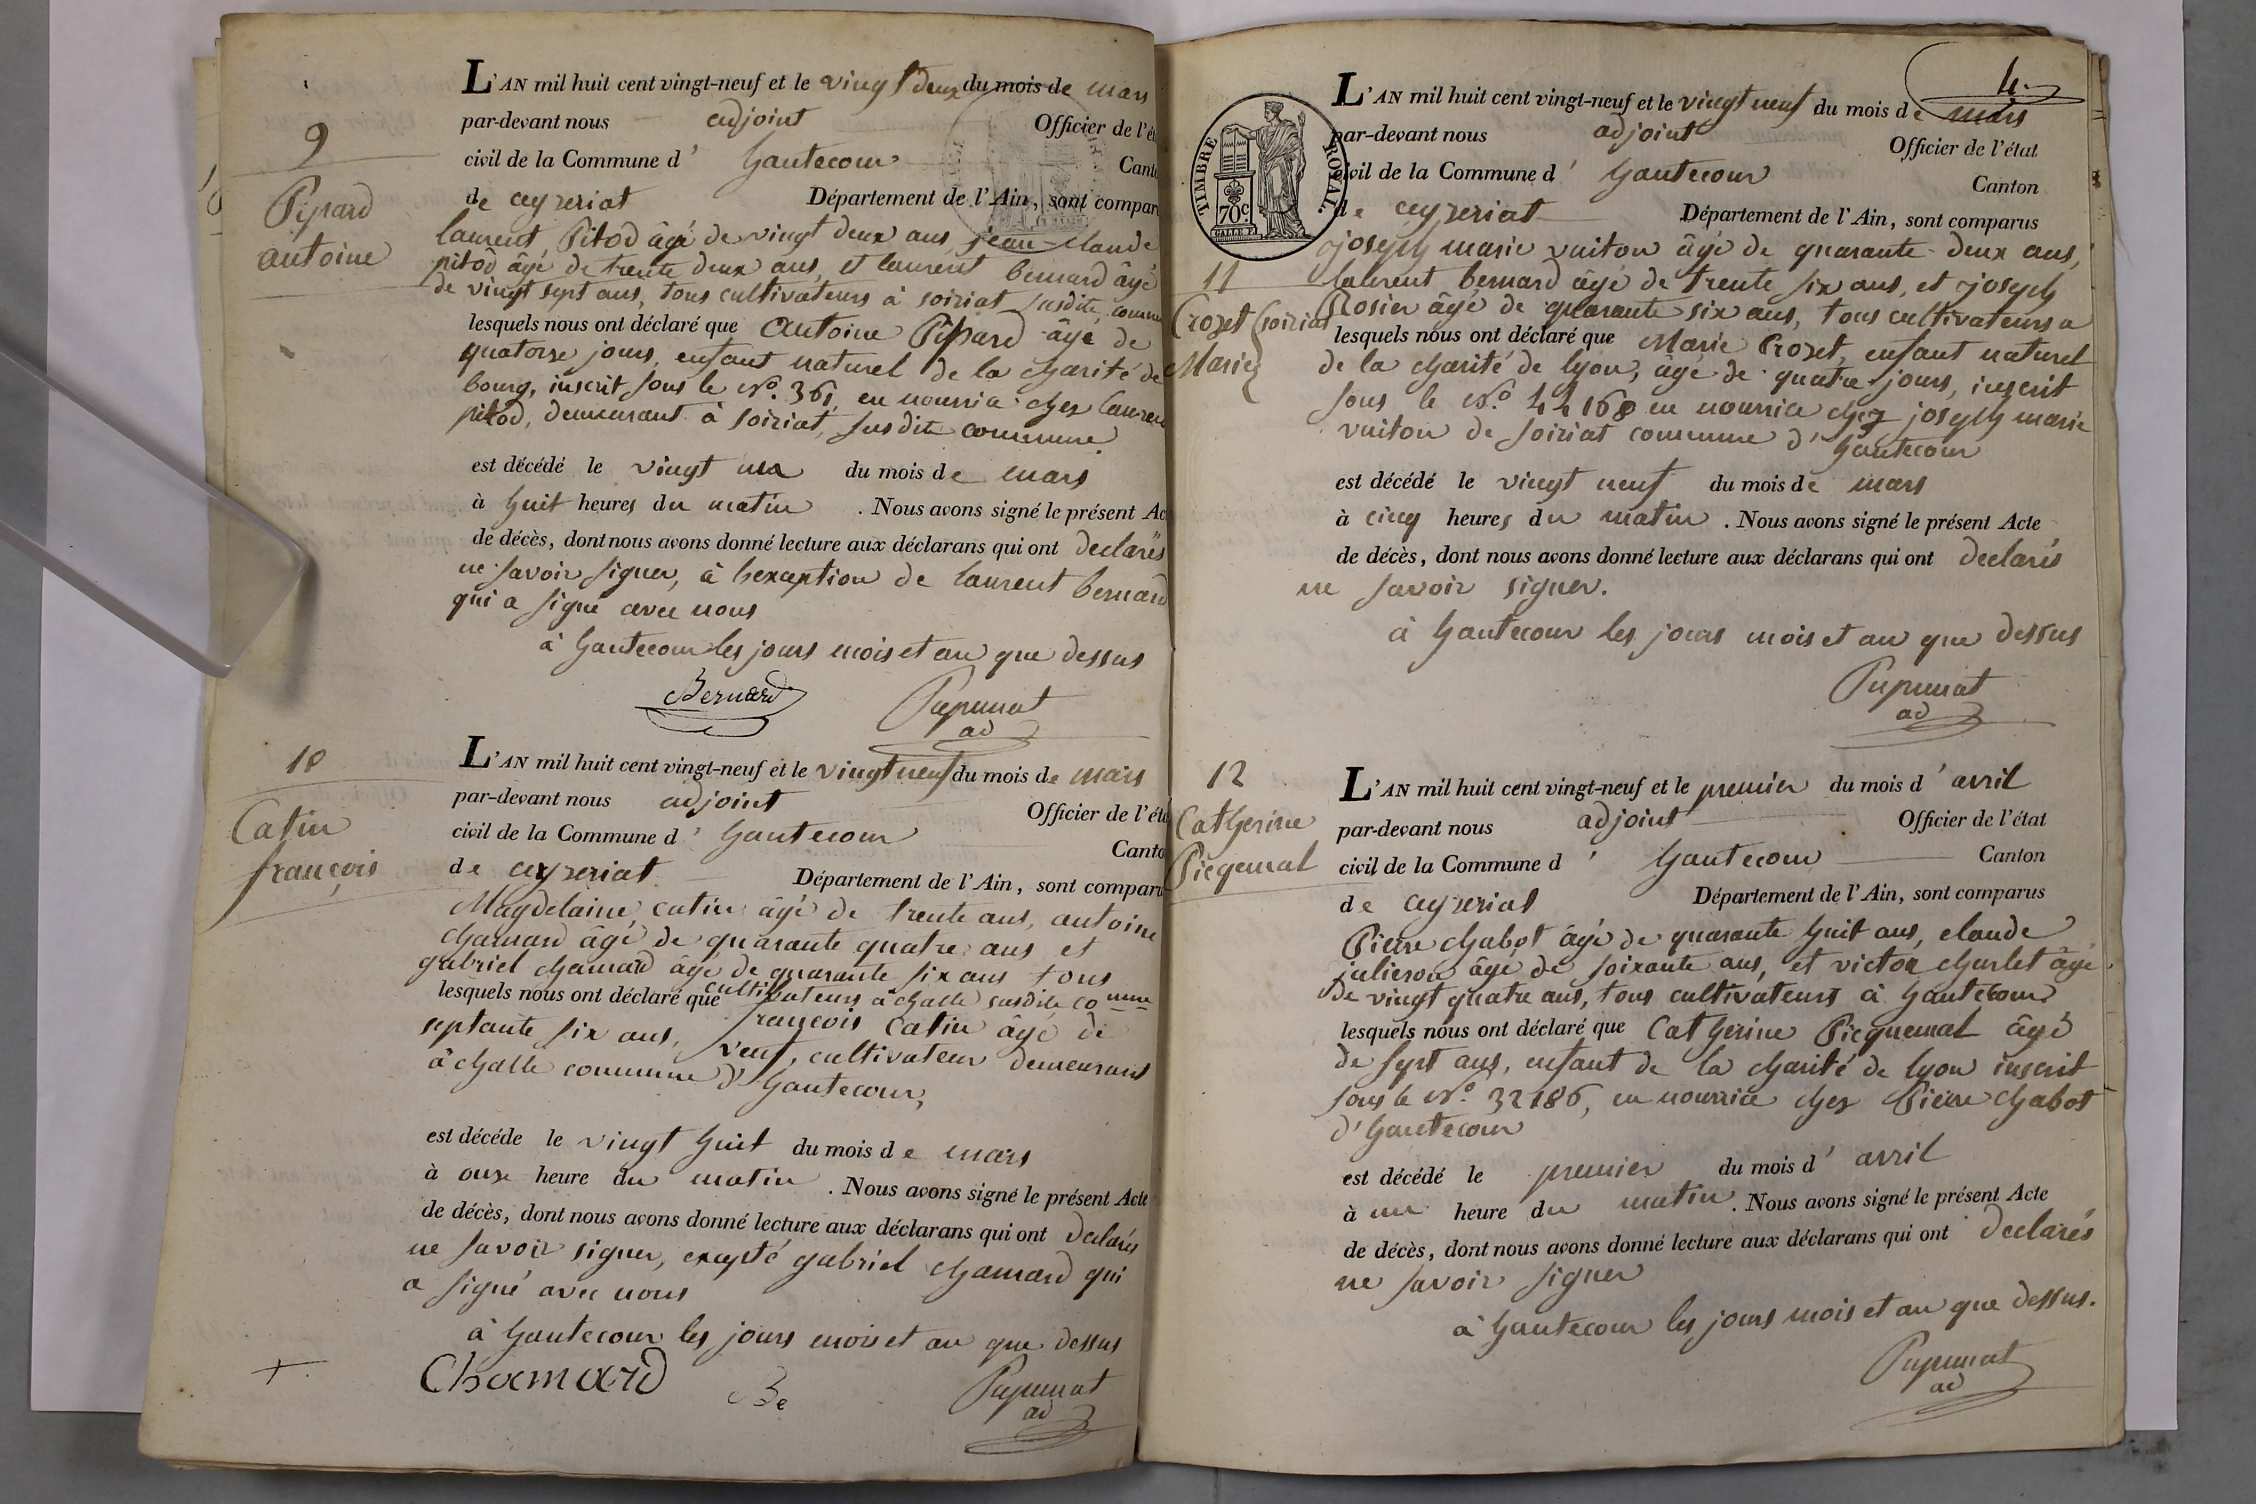 9
Pipard
antoine
L'AN mil huit cent vingt-neuf et le vingt deux du mois de mars
par-devant nous adjoint Officier de l'ét
civil de la Commune d' hautecour Cant
de ceyzeriat Département de l'Ain, sont compar
laurent Pitod âgé de vingt deux ans, jean claude
pitod âgé de trente deux ans, et laurent bernard âgé
de vingt sept ans, tous cultivateurs à soiriat susdite commu
lesquels nous ont déclaré que Antoine Pipard âgé de
quatorze jours, enfant naturel de la charité de
bourg, inscrit sous le No. 361, en nourrice chez lauren
pitod, demeurant à soiriat, susdite commune.
est décédé le vingt un du mois de mars
à huit heures du matin . Nous avons signé le présent Ac
de décès, dont nous avons donné lecture aux déclarans qui ont declarés
ne savoir signer, à l'exception de laurent bernard
qui a signé avec nous
à hautecour les jours mois et an que dessus
Bernard Pupunat
ad
10
Catin
françois
L'AN mil huit cent vingt-neuf et le vingt neuf du mois de mars
par-devant nous adjoint Officier de l'éta
civil de la Commune d' hautecour Canto
de ceyzeriat Département de l'Ain, sont comparu
Magdelaine catin âgé de trente ans, antoine
chamard âgé de quarante quatre ans et
gabriel chamard âgé de quarante six ans tous
lesquels nous ont déclaré que cultivateurs à challe susdite comune
françois Catin âgé de
septante six ans, veuf, cultivateur demeurant
à challe commune d'hautecour,
est décéde le vingt huit du mois de mars
à onze heure du matin . Nous avons signé le présent Acte
de décès, dont nous avons donné lecture aux déclarans qui ont declarés
ne savoir signer, excepté gabriel chamard qui
a signé avec nous
à hautecour les jours mois et an que dessus
Chamard Be Pupunat
ad
TIMBRE ROYAL.
70c
11
Crozet
Marie
soiriat
L'AN mil huit cent vingt-neuf et le vingt neuf du mois de mars
par-devant nous adjoint Officier de l'état
civil de la Commune d' hautecour Canton
de ceyzeriat Département de l'Ain, sont comparus
joseph marie vuiton âgé de quarante deux ans,
laurent bernard âgé de trente six ans, et joseph
Rosier âgé de quarante six ans, tous cultivateurs a
lesquels nous ont déclaré que Marie Crozet, enfant naturel
de la charité de lyon, âgé de quatre jours, inscrit
sous le No. 44168 en nourrice chez joseph marie
vuiton de soiriat commune d'hautecour
est décédé le vingt neuf du mois de mars
à cinq heures du matin . Nous avons signé le présent Acte
de décès, dont nous avons donné lecture aux déclarans qui ont declarés
ne savoir signer.
à hautecour les jours mois et an que dessus
Pupunat
ad
12
Catherine
Picqemal
L'AN mil huit cent vingt-neuf et le premier du mois d'avril
par-devant nous adjoint Officier de l'état
civil de la Commune d' hautecour Canton
de ceyzeriat Département de l'Ain, sont comparus
Pierre chabot âgé de quarante huit ans, claude
julieron âgé de soixante ans, et victor charlet âgé
de vingt quatre ans, tous cultivateurs à hautecour
lesquels nous ont déclaré que Catherine Picquemal âgé
de sept ans, enfant de la charité de lyon inscrit
sous le No. 32186, en nourrice chez Pierre chabot
d'hautecour
est décédé le premier du mois d'avril
à un heure du matin . Nous avons signé le présent Acte
de décès, dont nous avons donné lecture aux déclarans qui ont declarés
ne savoir signer
à hautecour les jours mois et an que dessus.
Pupunat
ad